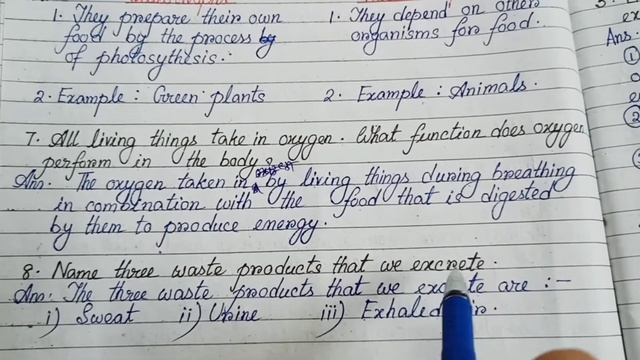 1. They prepare their own
food by the process by
of photosythesis.
1. They depend on others
organisms for food.
2. Example : Green plants
2. Example : Animals.
7. All living things take in oxygen. What function does oxygen
perform in the body?
Ans. The oxygen taken in by living things during breathing
in combnation with the food that is digested
by them to produce energy.
8. Name three waste products that we excrete.
Ans. The three waste products that we are :-
i) Sweat ii) Urine iii)
Ans.
1
2